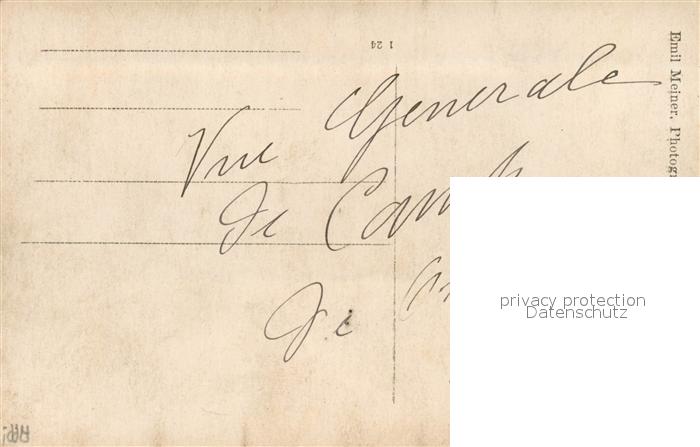 1 24
Emil Meiner, Photogr
Vue Generale
de
de
privacy protection
Datenschutz